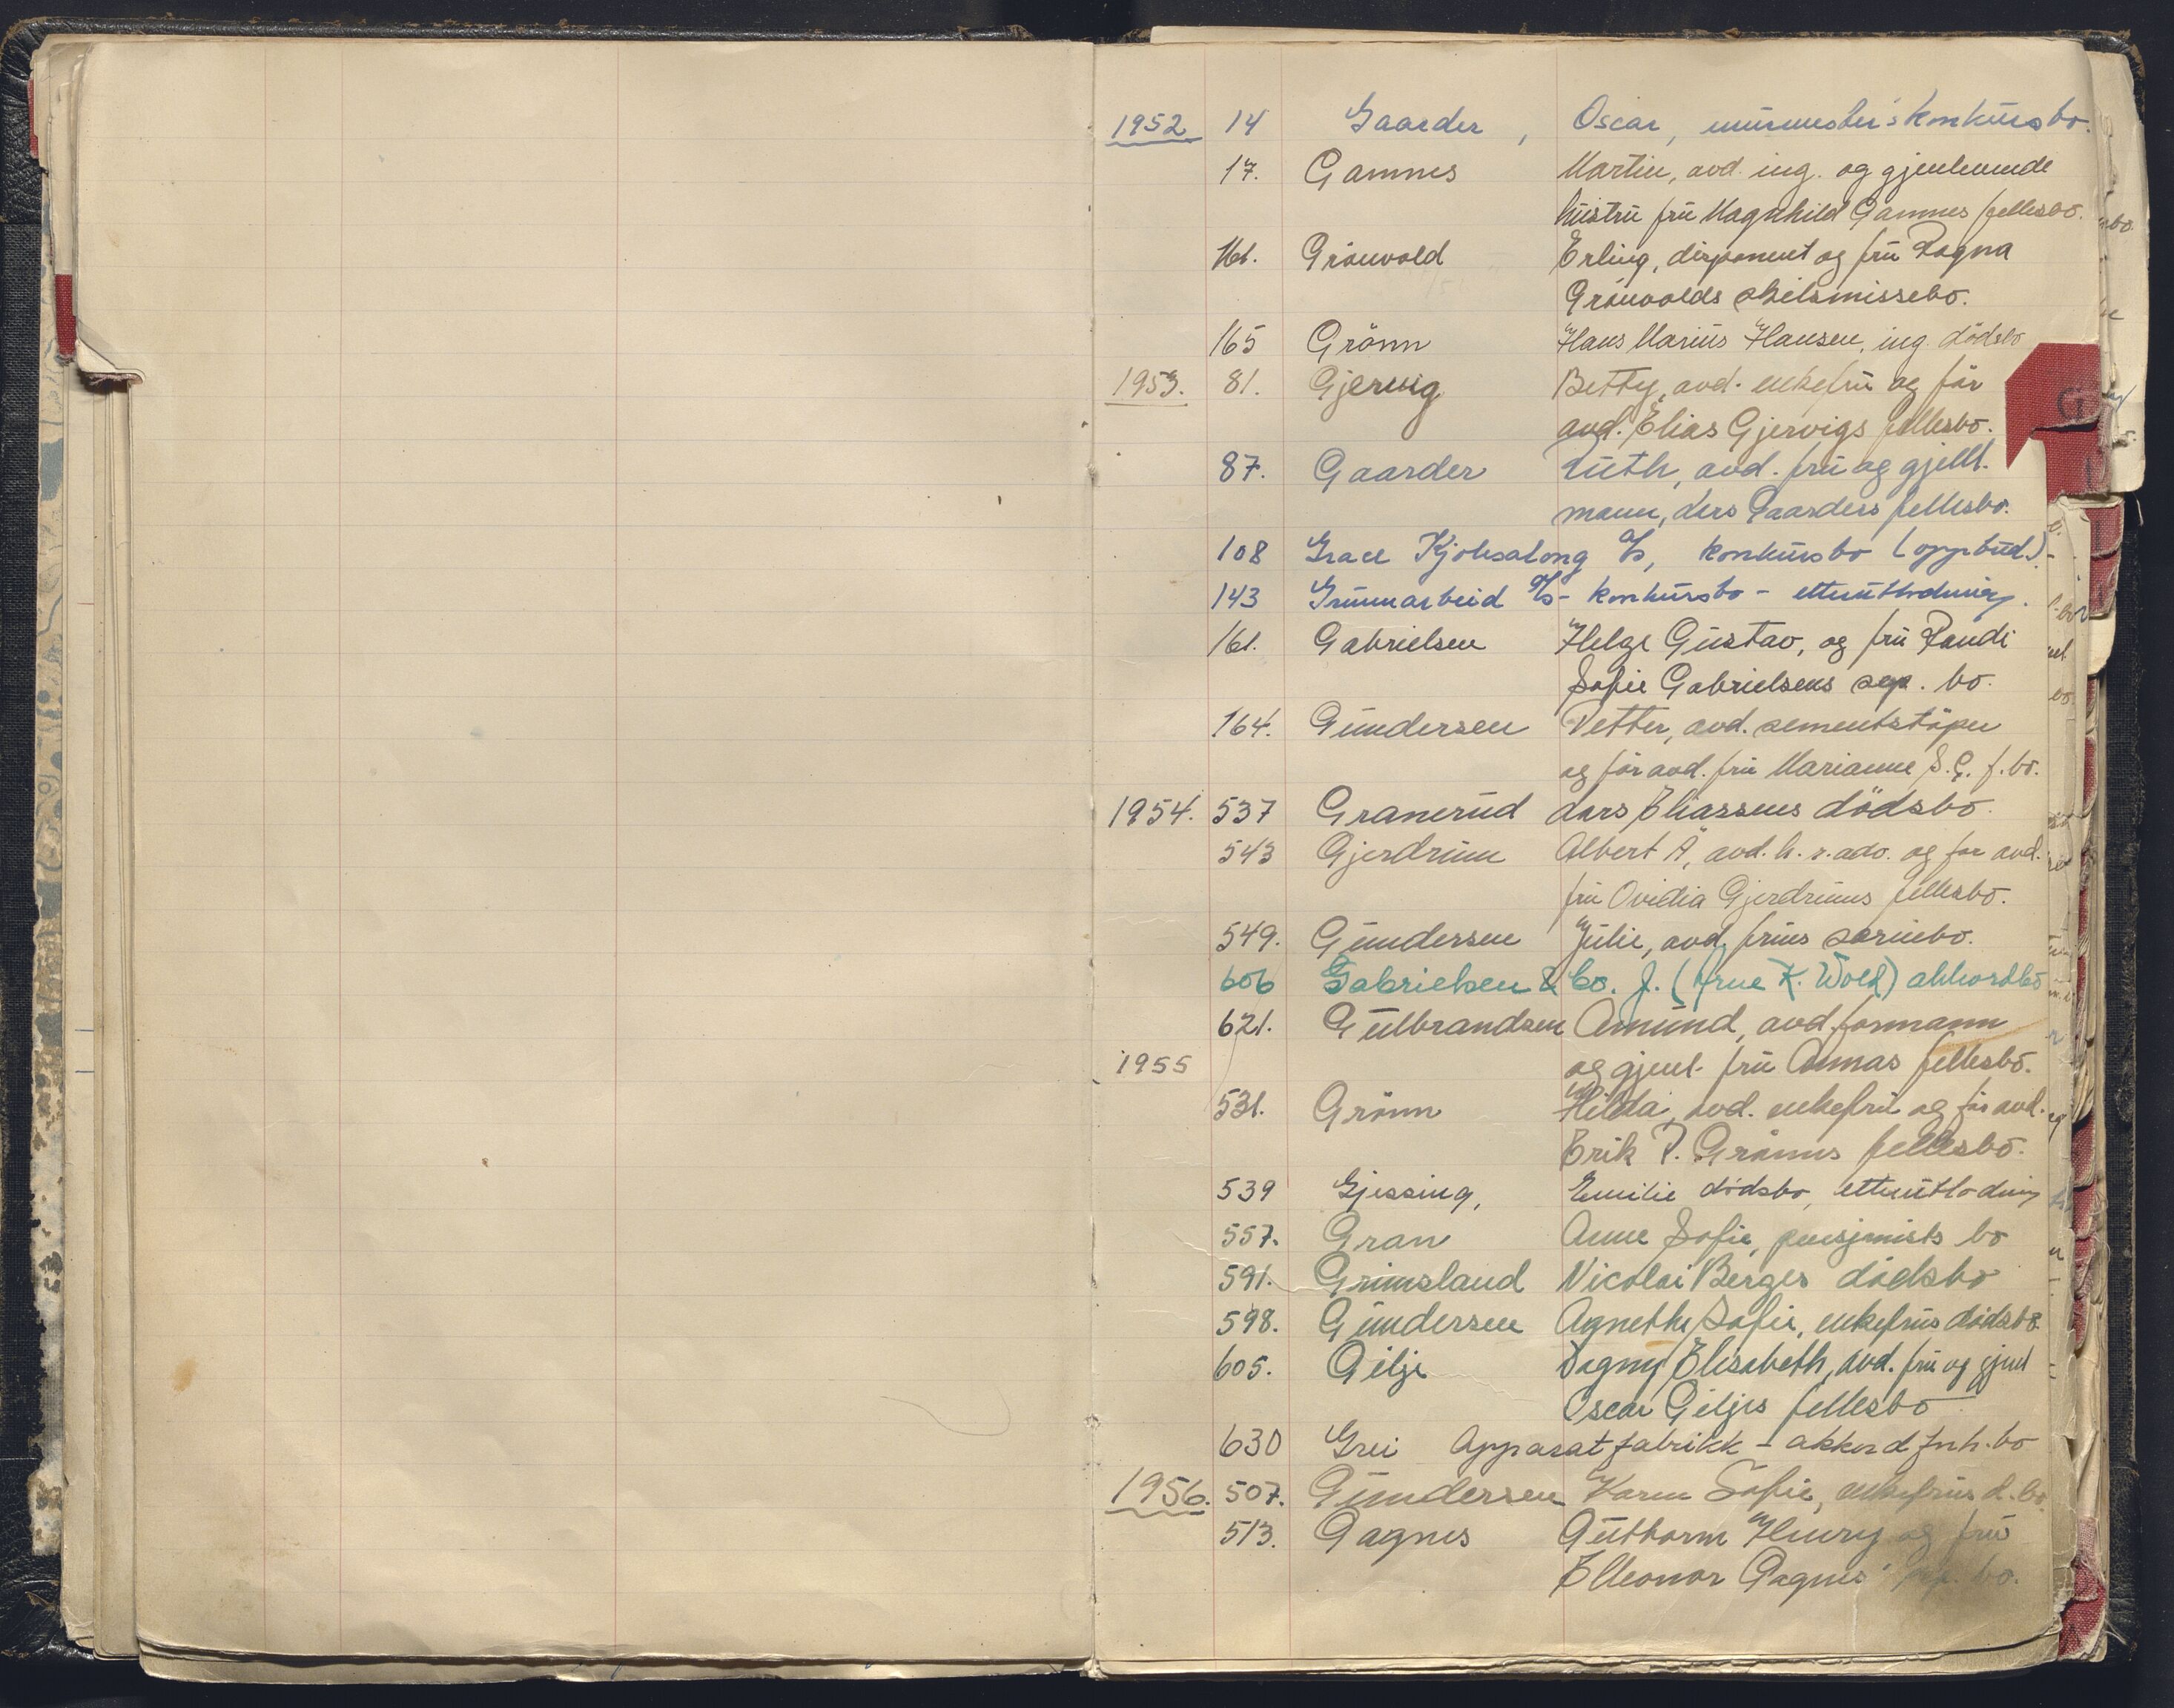 1952 14 Gaarder, Oscar, murmester's konkursbo.
17. Gamnes Martin, avd. ing. og gjenlevende
hustru fru Magnhild Gamnes fellesbo.
161. Grönvold Erling, disponent og fru Ragna
Grönvolds skilsmissebo.
165 Grönn Hans Marius Hansen, ing. dödsbo
1953. 81. Gjervig Betty, avd. enkefru og för
avd. Elias Gjervigs fellesbo.
87. Gaarder Ruth, avd. fru og gjenl.
mann, Lars Gaarders fellesbo.
108 Grace Kjolesalong A/S, konkursbo (oppbud.)
143 Grunnarbeid A/S - konkursbo - etterutlodning.
161. Gabrielsen Helge Gustav, og fru Randi
Sofie Gabrielsens sep. bo.
164. Gundersen Petter, avd. sementstöper
og för avd. fru Marianne S. G. f. bo.
1954. 537 Granerud Lars Eliassens dödsbo.
543 Gjerdrum Albert A, avd. h. r. adv. og för avd.
fru Ovidia Gjerdrums fellesbo.
549. Gundersen Julie, avd. frus særiebo.
606 Gabrielsen & Co. J. (Arne K. Wold) akkordbo
621. Gulbrandsen Amund, avd. formann
1955 og gjenl. fru Annas fellesbo.
531. Grönn Hilda, avd. enkefru og för avd.
Erik P. Grönns fellesbo.
539 Gjessing, Emilie dödsbo, etterutlodning
557. Gran Anne Sofie, pensjonists bo
591. Grimsland Nicolai Berges dödsbo
598. Gundersen Agnethe Sofie, enkefrus dödsbo.
605. Gilje Dagny Elisabeth, avd. fru og gjenl
Oscar Giljes fellesbo
630 Grei Apparatfabrikk - akkord forh. bo
1956. 507. Gundersen Karen Sofie, enkefrus d. bo.
513. Gagnes Guthorm Henry og fru
Elleonor Gagnes' sep. bo.
G